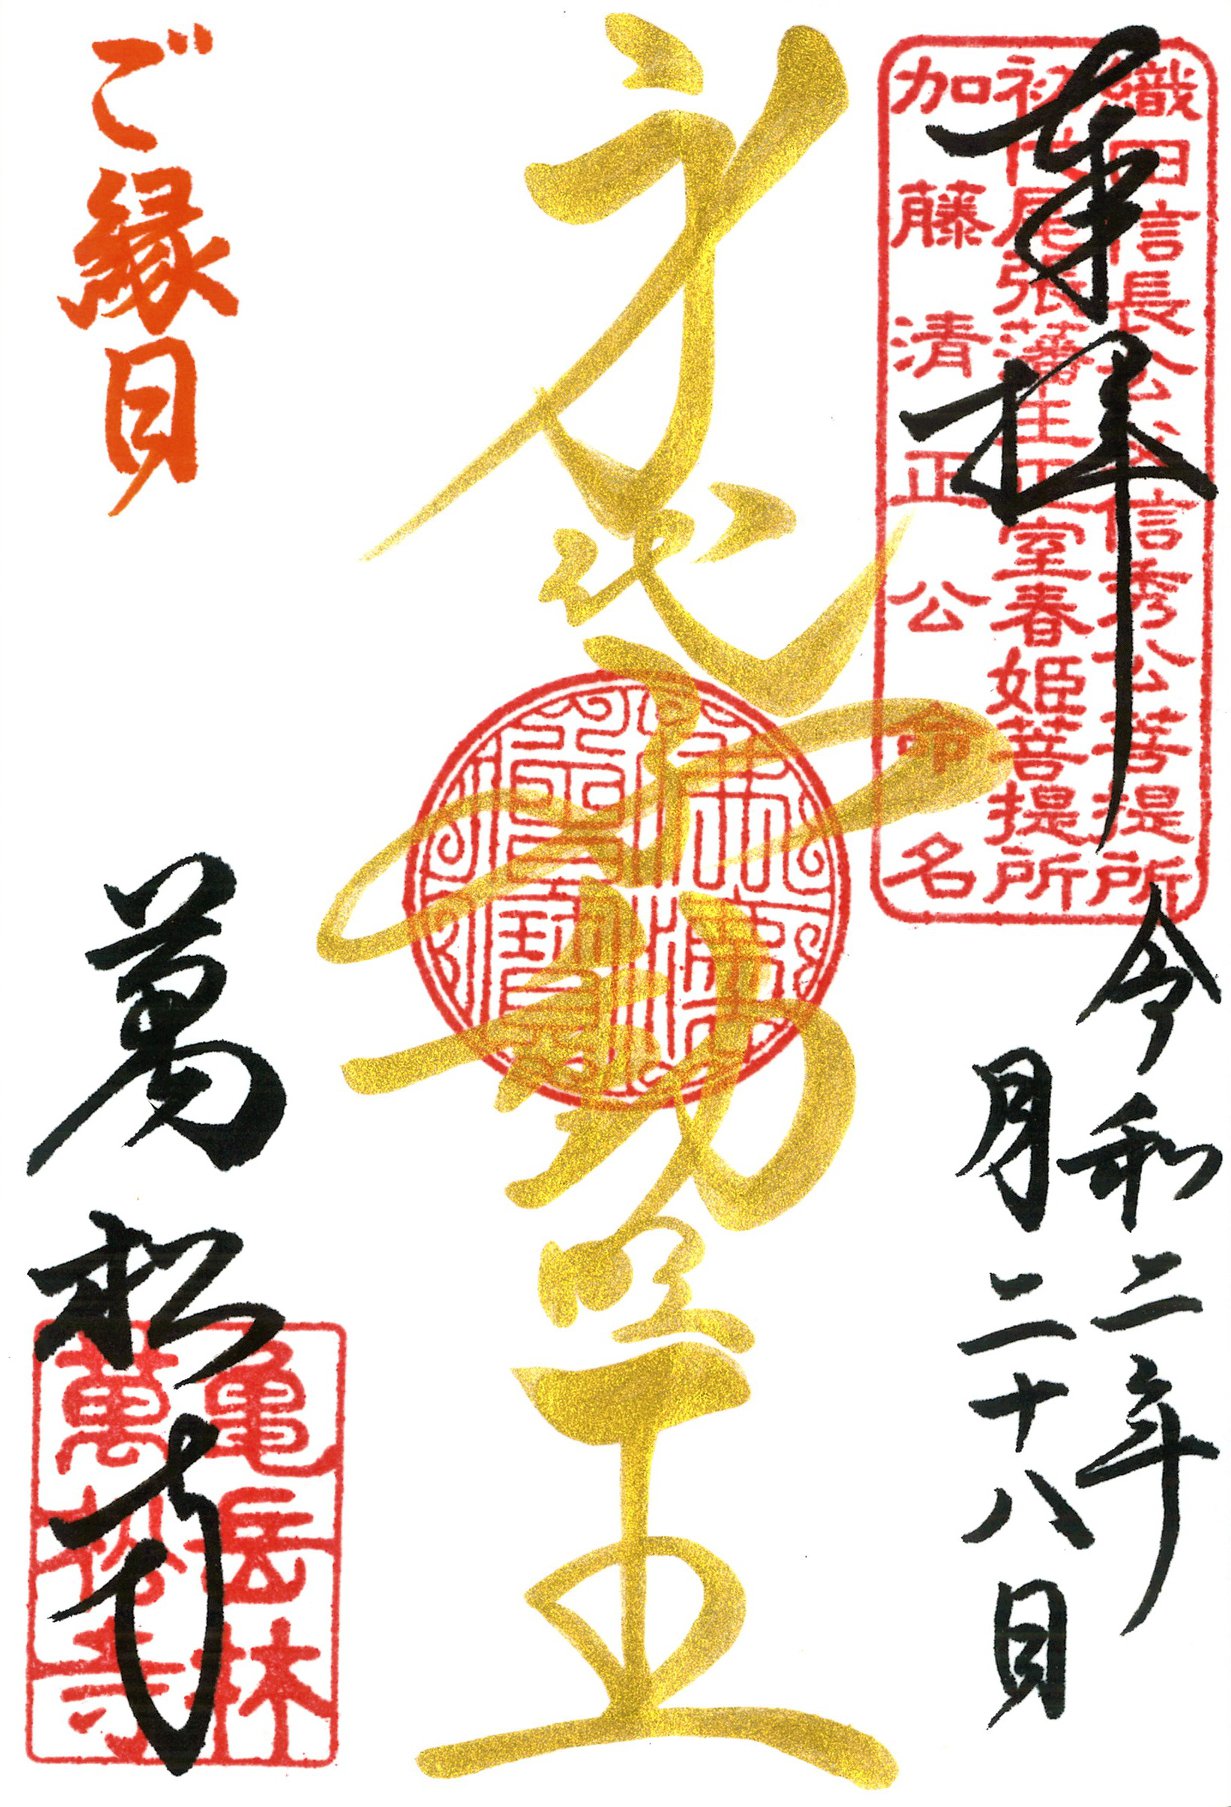 奉拝
織田信長公父信秀公菩提所
初代尾張藩主正室春姫菩提所
加藤清正公命名
令和二年
月二十八日
身代不動明王
ご縁日
萬松寺
亀岳林
萬松寺